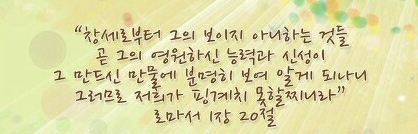 “창세로부터 그의 보이지 아니하는 것들
곧 그의 영원하신 능력과 신성이
그 만드신 만물에 분명히 보여 알게 되나니
그러므로 저희가 핑계치 못할찌니라”
로마서 1장 20절